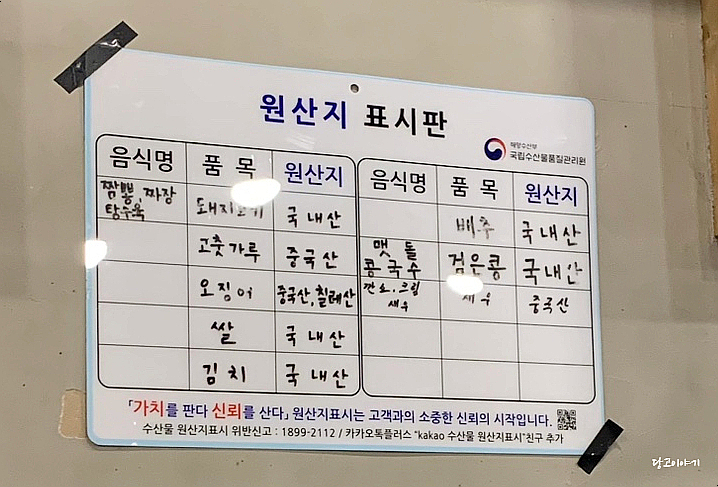 원산지 표시판
해양수산부
국립수산물품질관리원
음식명 품 목 원산지
짬뽕, 짜장
탕수육 돼지고기 국내산
고춧가루 중국산
오징어 중국산, 칠레산
쌀 국내산
김치 국내산
음식명 품 목 원산지
배추 국내산
맷돌
콩국수 검은콩 국내산
깐쇼, 크림
새우 새우 중국산
「가치를 판다 신뢰를 산다」 원산지표시는 고객과의 소중한 신뢰의 시작입니다.
수산물 원산지표시 위반신고 : 1899-2112 / 카카오톡플러스 "kakao 수산물 원산지표시"친구 추가
당고이야기